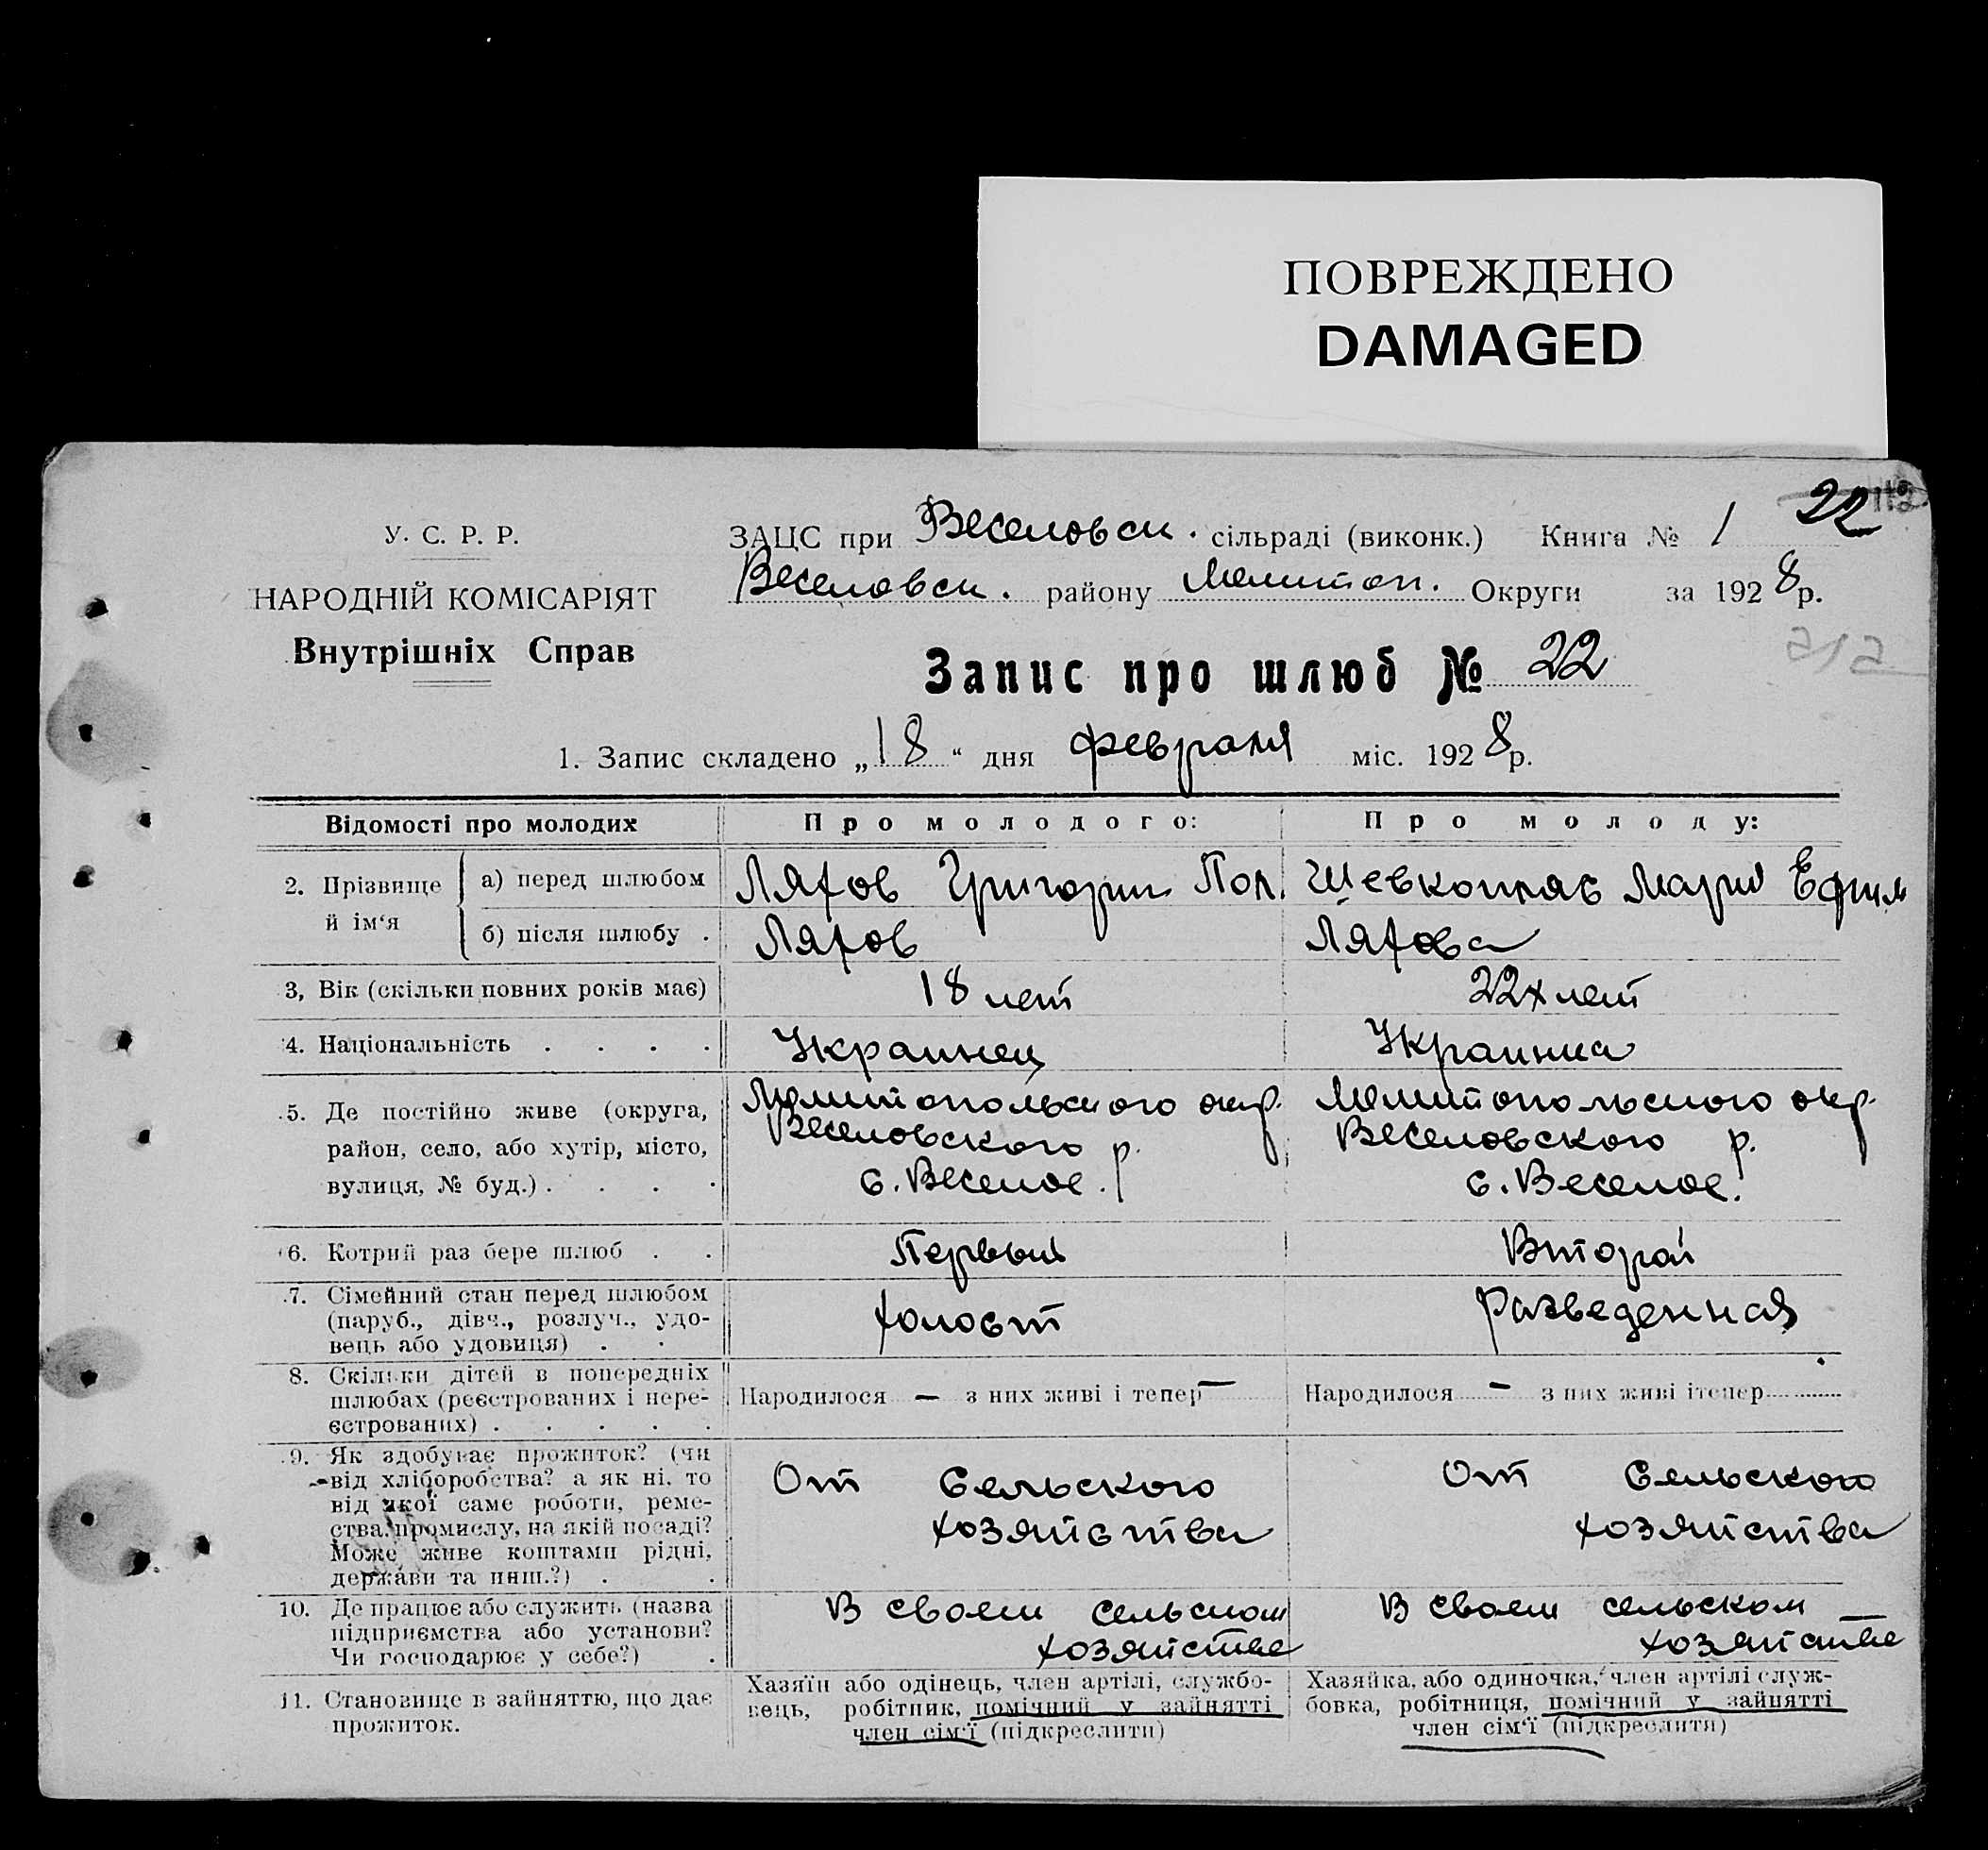 ПОВРЕЖДЕНО
DAMAGED
22
У. С. Р. Р.
НАРОДНІЙ КОМІСАРІЯТ
Внутрішніх Справ
ЗАЦС при Веселовск. сільраді (виконк.) Книга № 1
Веселовск. району Мелитоп. Округи за 1928 р.
212
Запис про шлюб № 22
1. Запис складено „18“ дня февраля міс. 1928 р.
Відомості про молодих Про молодого: Про молоду:
2. Прізвище й ім‘я
а) перед шлюбом Ляхов Григорий Пол. Шевкопляс Мария Ефим
б) після шлюбу . Ляхов Ляхова
3, Вік (скільки повних років має) 18 лет 22х лет
4. Національність . . . . Украинец Украинка
5. Де постійно живе (округа, район, село, або хутір, місто, вулиця, № буд.) . . . .
Мелитопольского окр.
Веселовского р.
с. Веселое.
Мелитопольского окр.
Веселовского р.
с. Веселое.
6. Котрий раз бере шлюб . . Первый Вторай
7. Сімейний стан перед шлюбом
(паруб., дівч., розлуч., удо-
вець або удовиця) . .
холост Разведенная
8. Скільки дітей в попередніх
шлюбах (реєстрованих і нере-
єстрованих) . . . . .
Народилося — з них живі і тепер —
Народилося — з них живі ітепер
9. Як здобуває прожиток? (чи
від хліборобства? а як ні, то
від якої саме роботи, реме-
ства, промислу, на якій посаді?
Може живе коштами рідні,
держави та инш.?) . .
От Сельского
хозяйства
От Сельского
хозяйства
10. Де працює або служить (назва
підприємства або установи?
Чи господарює у себе?) .
В своем сельском
хозяйстве
В своем сельском
хозяйстве
11. Становище в зайняттю, що дає
прожиток.
Хазяїн або одінець, член артілі, службо-
вець, робітник, помічний у зайнятті
член сім‘ї (підкреслити)
Хазяйка, або одиночка, член артілі служ-
бовка, робітниця, помічний у зайнятті
член сім‘ї (підкреслити)